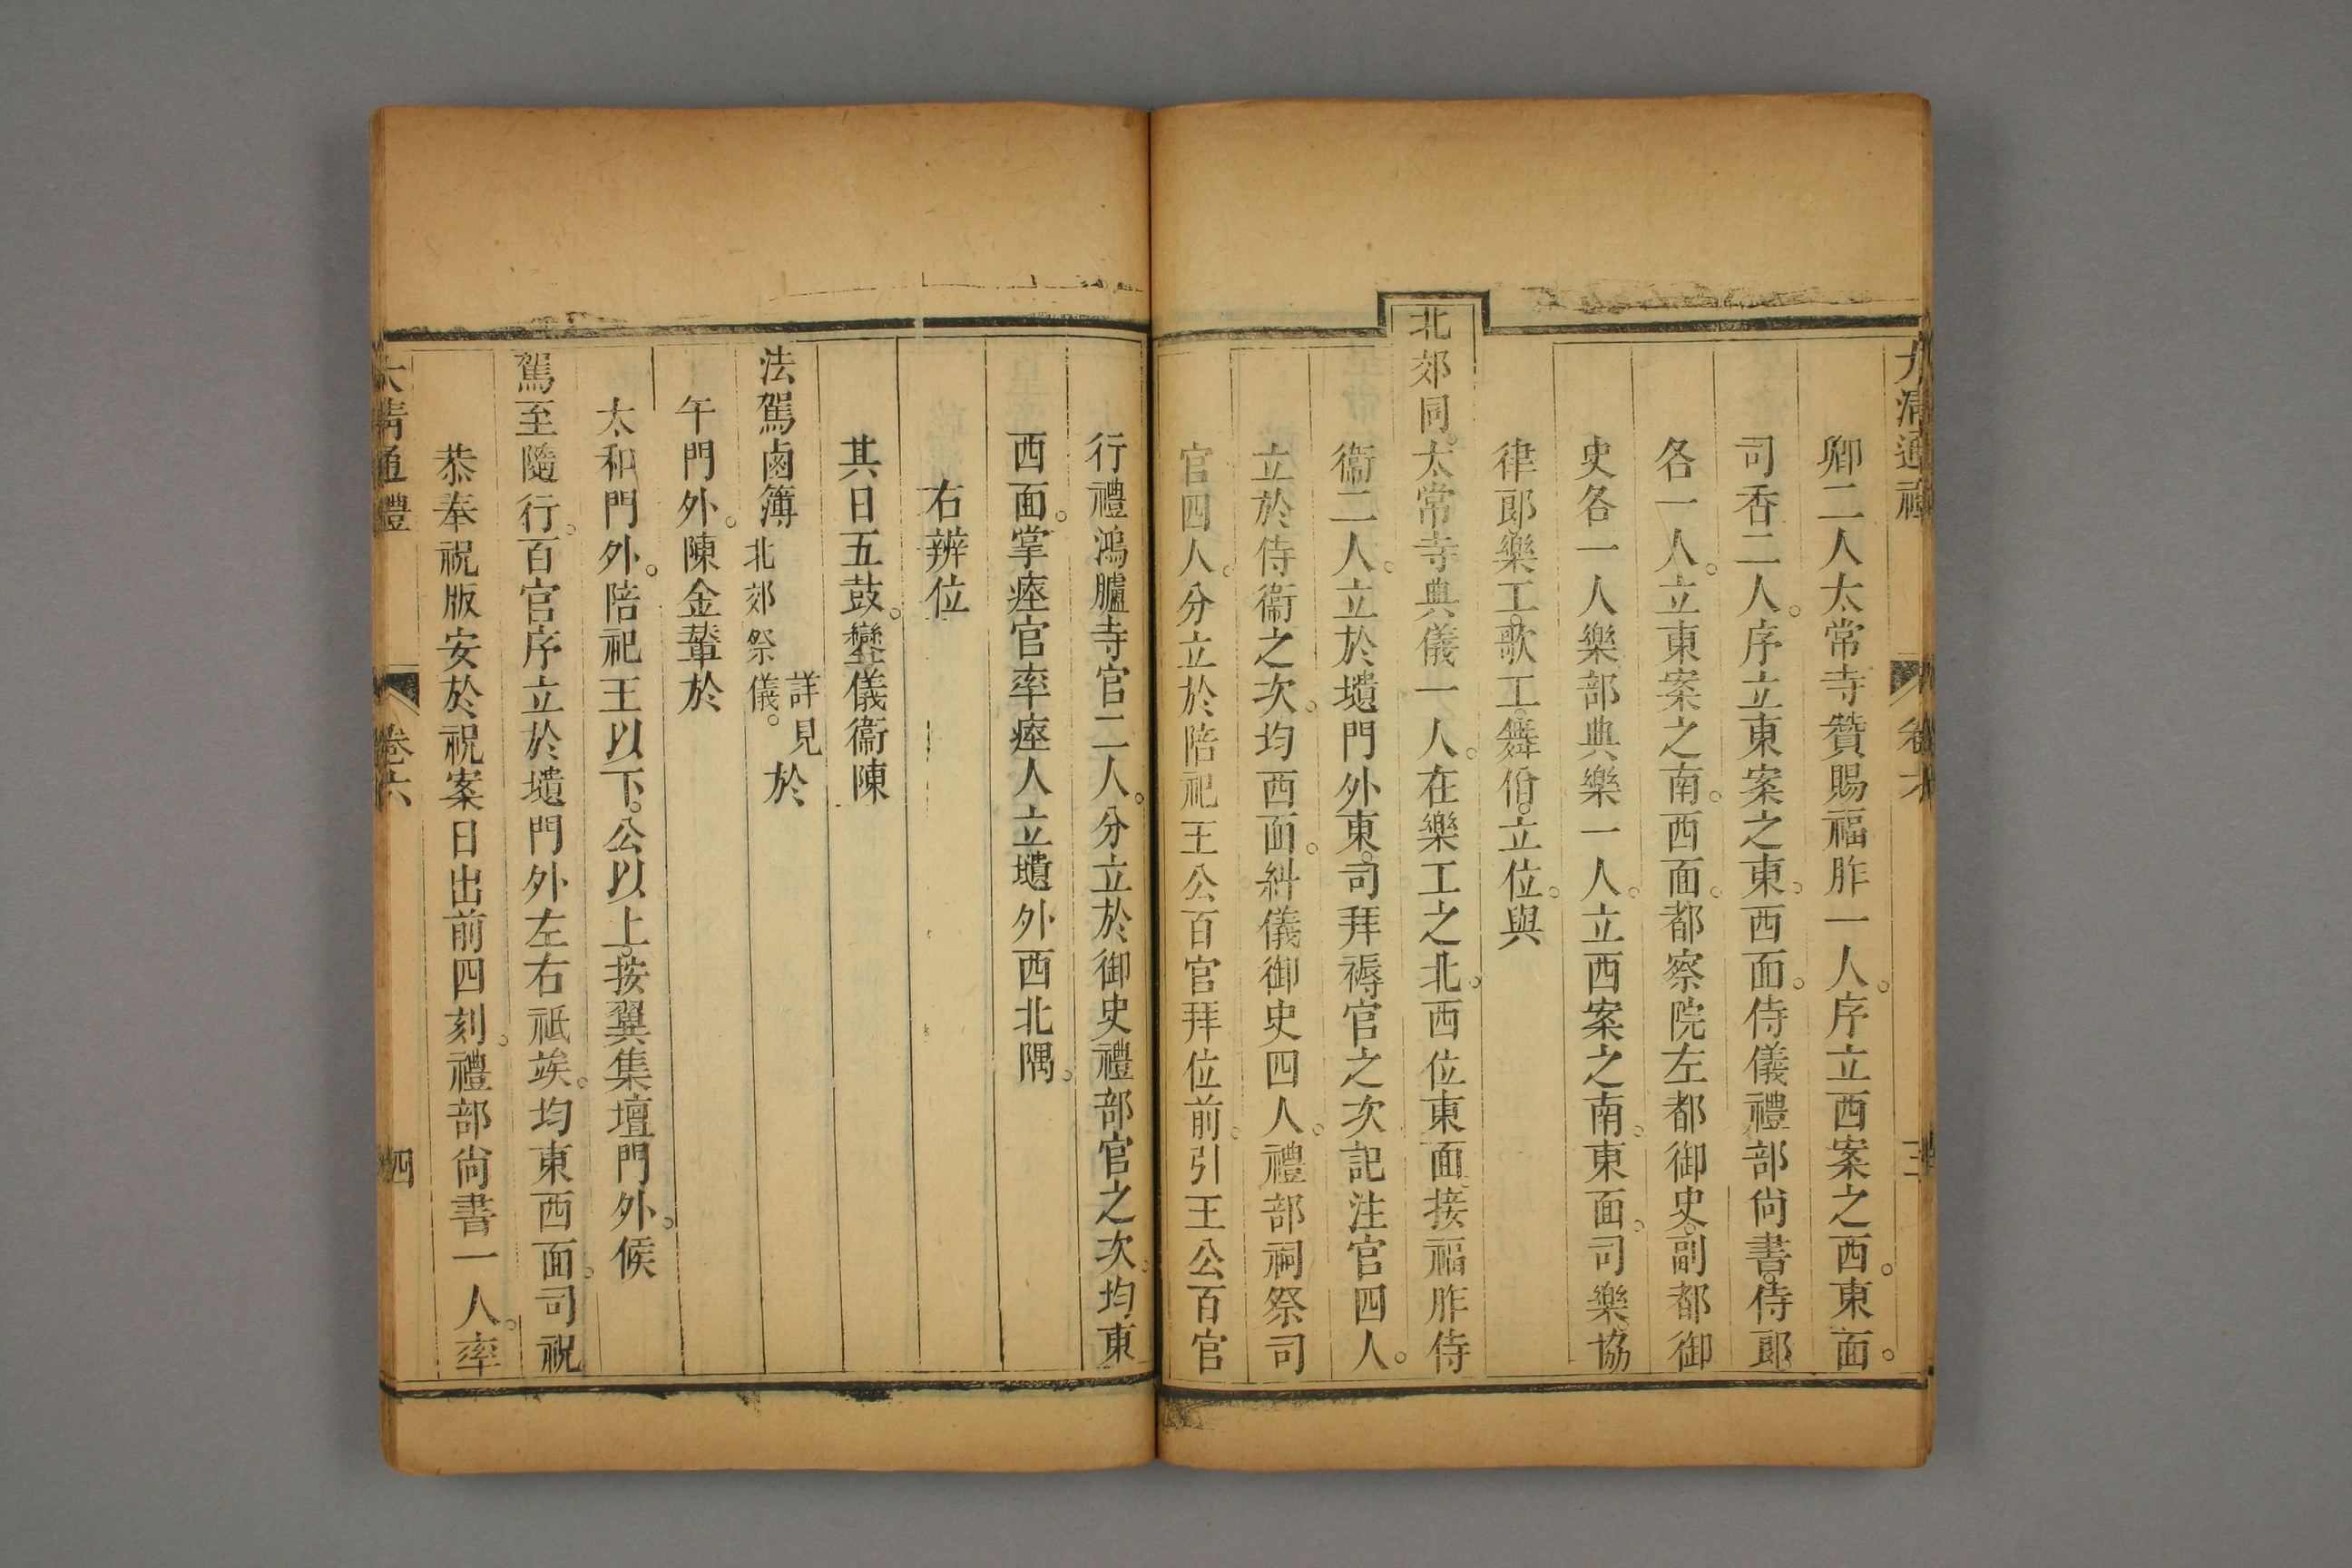 大清通禮 卷六 三
卿二人太常寺贊賜福胙一人。序立西案之西。東面。
司香二人。序立東案之東。西面。侍儀禮部尙書。侍郞。
各一人。立東案之南。西面。都察院左都御史。副都御
史各一人樂部典樂一人。立西案之南。東面。司樂。協
律郞樂工。歌工。舞佾。立位。與
北郊同。太常寺典儀一人。在樂工之北。西位東面接福胙侍
衞二人。立於壝門外東。司拜褥官之次記注官四人。
立於侍衞之次。均西面。糾儀御史四人。禮部祠祭司
官四人。分立於陪祀王公百官拜位前。引王公百官
行禮鴻臚寺官二人。分立於御史禮部官之次。均東
西面。掌瘞官率瘞人立壝外西北隅。
右辨位
其日五鼓。鑾儀衞陳
法駕鹵簿 詳見北郊祭儀。 於
午門外。陳金輦於
太和門外。陪祀王以下。公以上。按翼集壇門外。候
駕至隨行。百官序立於壝門外左右祗竢。均東西面。司祝
恭奉祝版安於祝案日出前四刻。禮部尙書一人。率
大清通禮 卷六 四